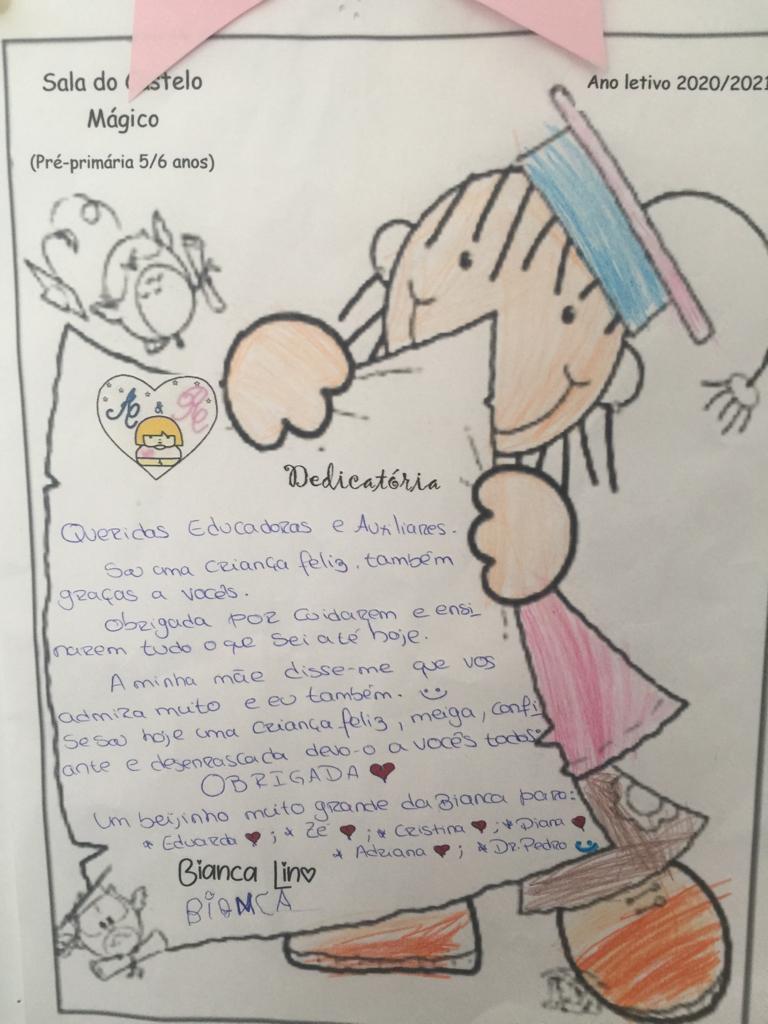 Sala do Castelo
Mágico
(Pré-primária 5/6 anos)
Ano letivo 2020/2021
&
Dedicatória
Queridas Educadoras e Auxiliares.
Sou uma criança feliz, também
graças a vocês.
Obrigada por cuidarem e ensi
narem tudo o que sei até hoje.
A minha mãe disse-me que vos
admira muito e eu também.
Se sou hoje uma criança feliz, meiga, confi
ante e desenrascada devo-o a vocês todos:
OBRIGADA ♥
Um beijinho muito grande da Bianca para:
* Eduarda ♥; * Zé ♥; * Cristina ♥; * Diana ♥
* Adriana ♥; * Dr. Pedro
Bianca Lino
BIANCA